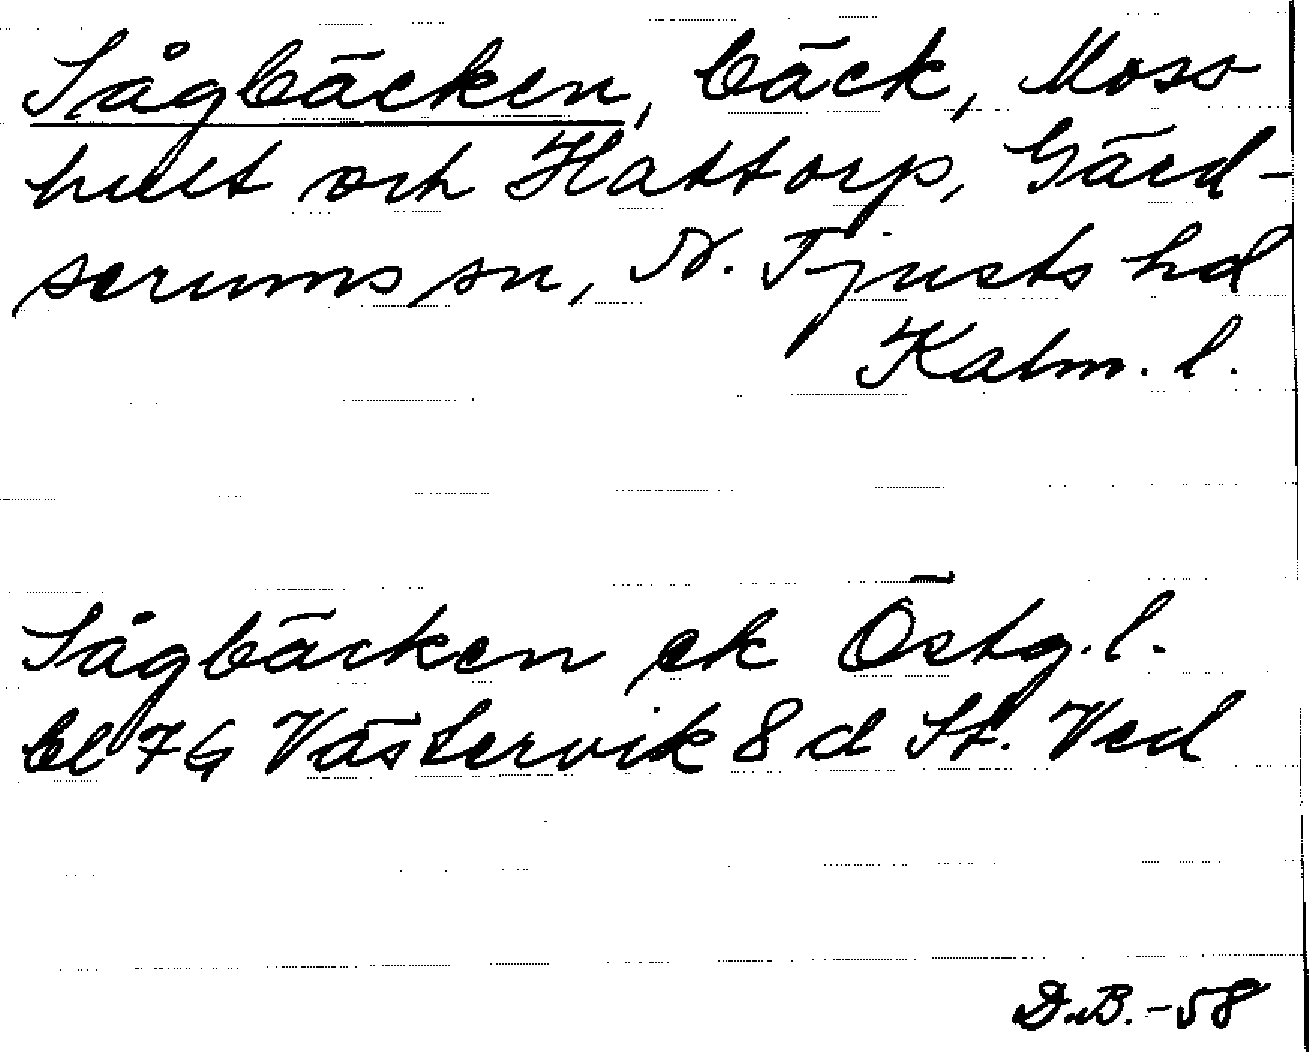 Sågbäcken, bäck, Moss
hult och Hattorp, Gärd-
serums sn, N. Tjusts hd
Kalm. l.
Sågbäcken ek Östg. l.
bl 7G Västervik 8 d St. Ved
D.B. -58